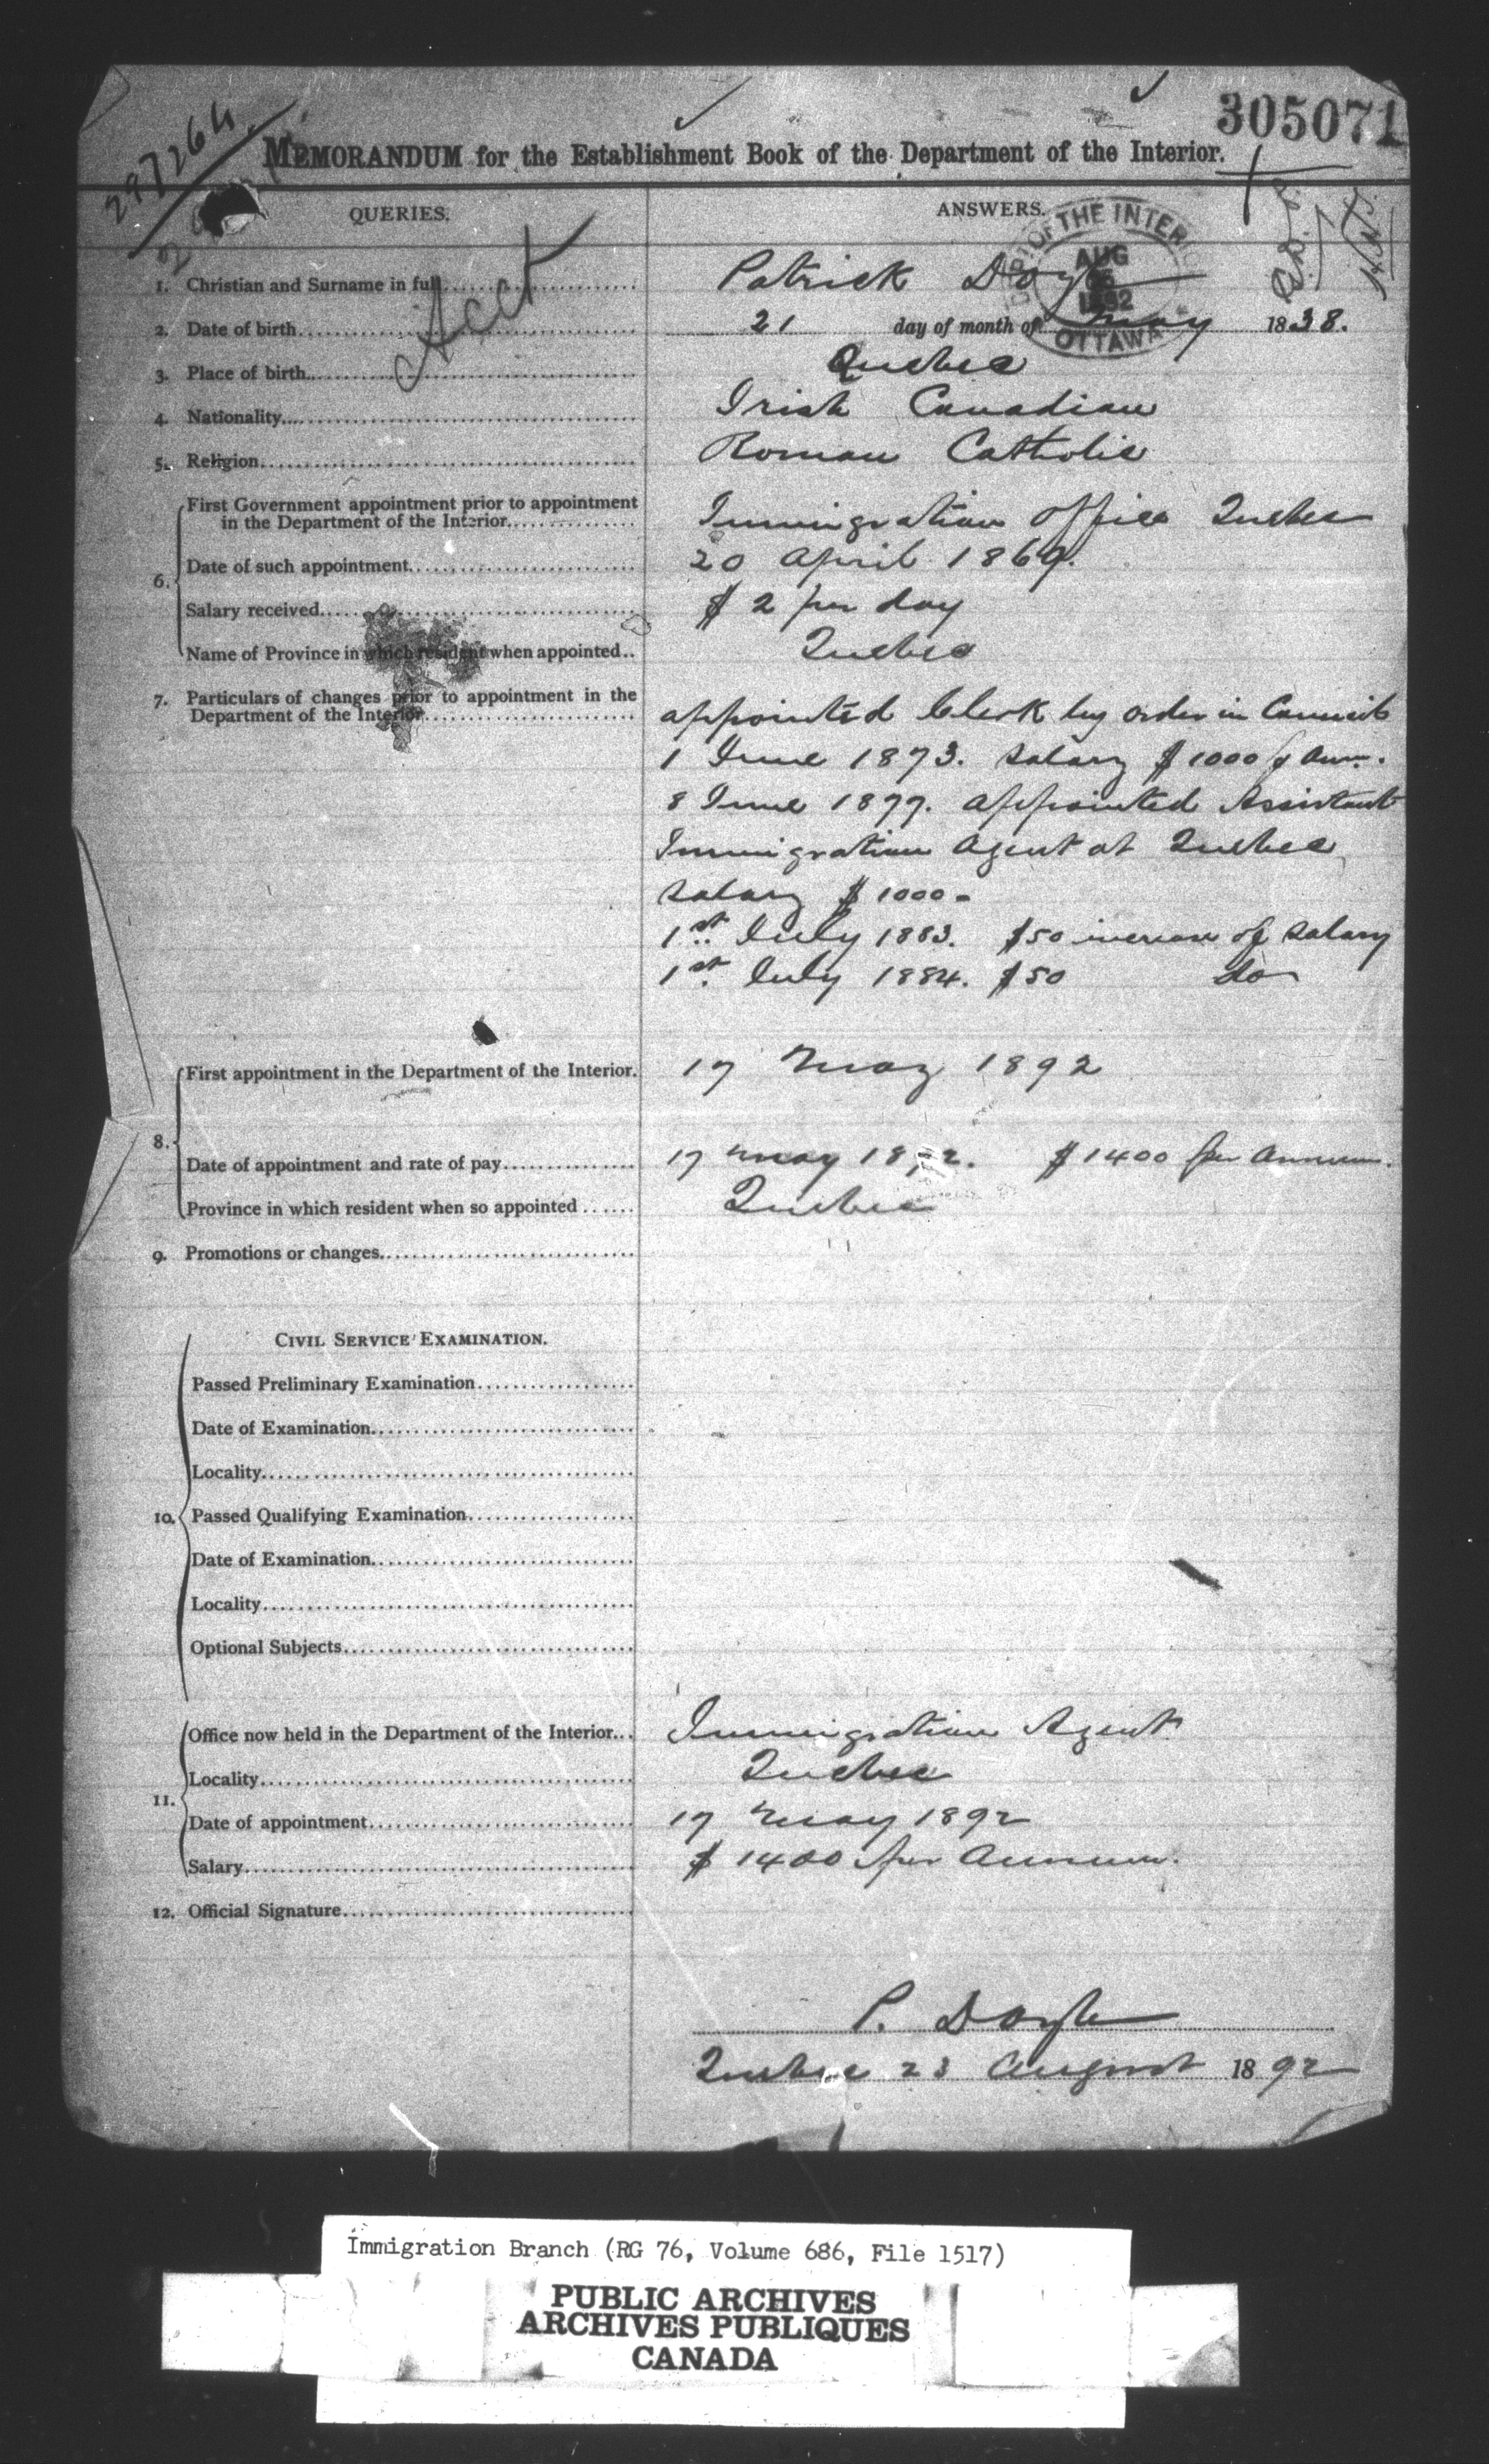 305071
297264
MEMORANDUM for the Establishment Book of the Department of the Interior.
QUERIES.
ANSWERS.
DEPT OF THE INTERIOR
AUG
1892
OTTAWA
Acct
1. Christian and Surname in full Patrick Doyle
2. Date of birth 21 day of month of May 1838.
3. Place of birth Quebec
4. Nationality Irish Canadian
5. Religion Roman Catholic
6. First Government appointment prior to appointment
in the Department of the Interior Immigration Office Quebec
Date of such appointment 20 April 1869.
Salary received $2 per day
Name of Province in which resident when appointed Quebec
7. Particulars of changes prior to appointment in the
Department of the Interior appointed Clerk by order in Council
1 June 1873. Salary $1000 p Ann.
8 June 1877. appointed Assistant
Immigration Agent at Quebec
Salary $1000-
1st July 1883. $50 increase of Salary
1st July 1884. $50 do
8. First appointment in the Department of the Interior. 17 May 1892
Date of appointment and rate of pay 17 May 1892. $1400 per Annum.
Province in which resident when so appointed Quebec
9. Promotions or changes
CIVIL SERVICE EXAMINATION.
10. Passed Preliminary Examination
Date of Examination
Locality
Passed Qualifying Examination
Date of Examination
Locality
Optional Subjects
11. Office now held in the Department of the Interior Immigration Agent
Locality Quebec
Date of appointment 17 May 1892
Salary $1400 per Annum.
12. Official Signature
P. Doyle
Quebec 23 August 1892
Immigration Branch (RG 76, Volume 686, File 1517)
PUBLIC ARCHIVES
ARCHIVES PUBLIQUES
CANADA